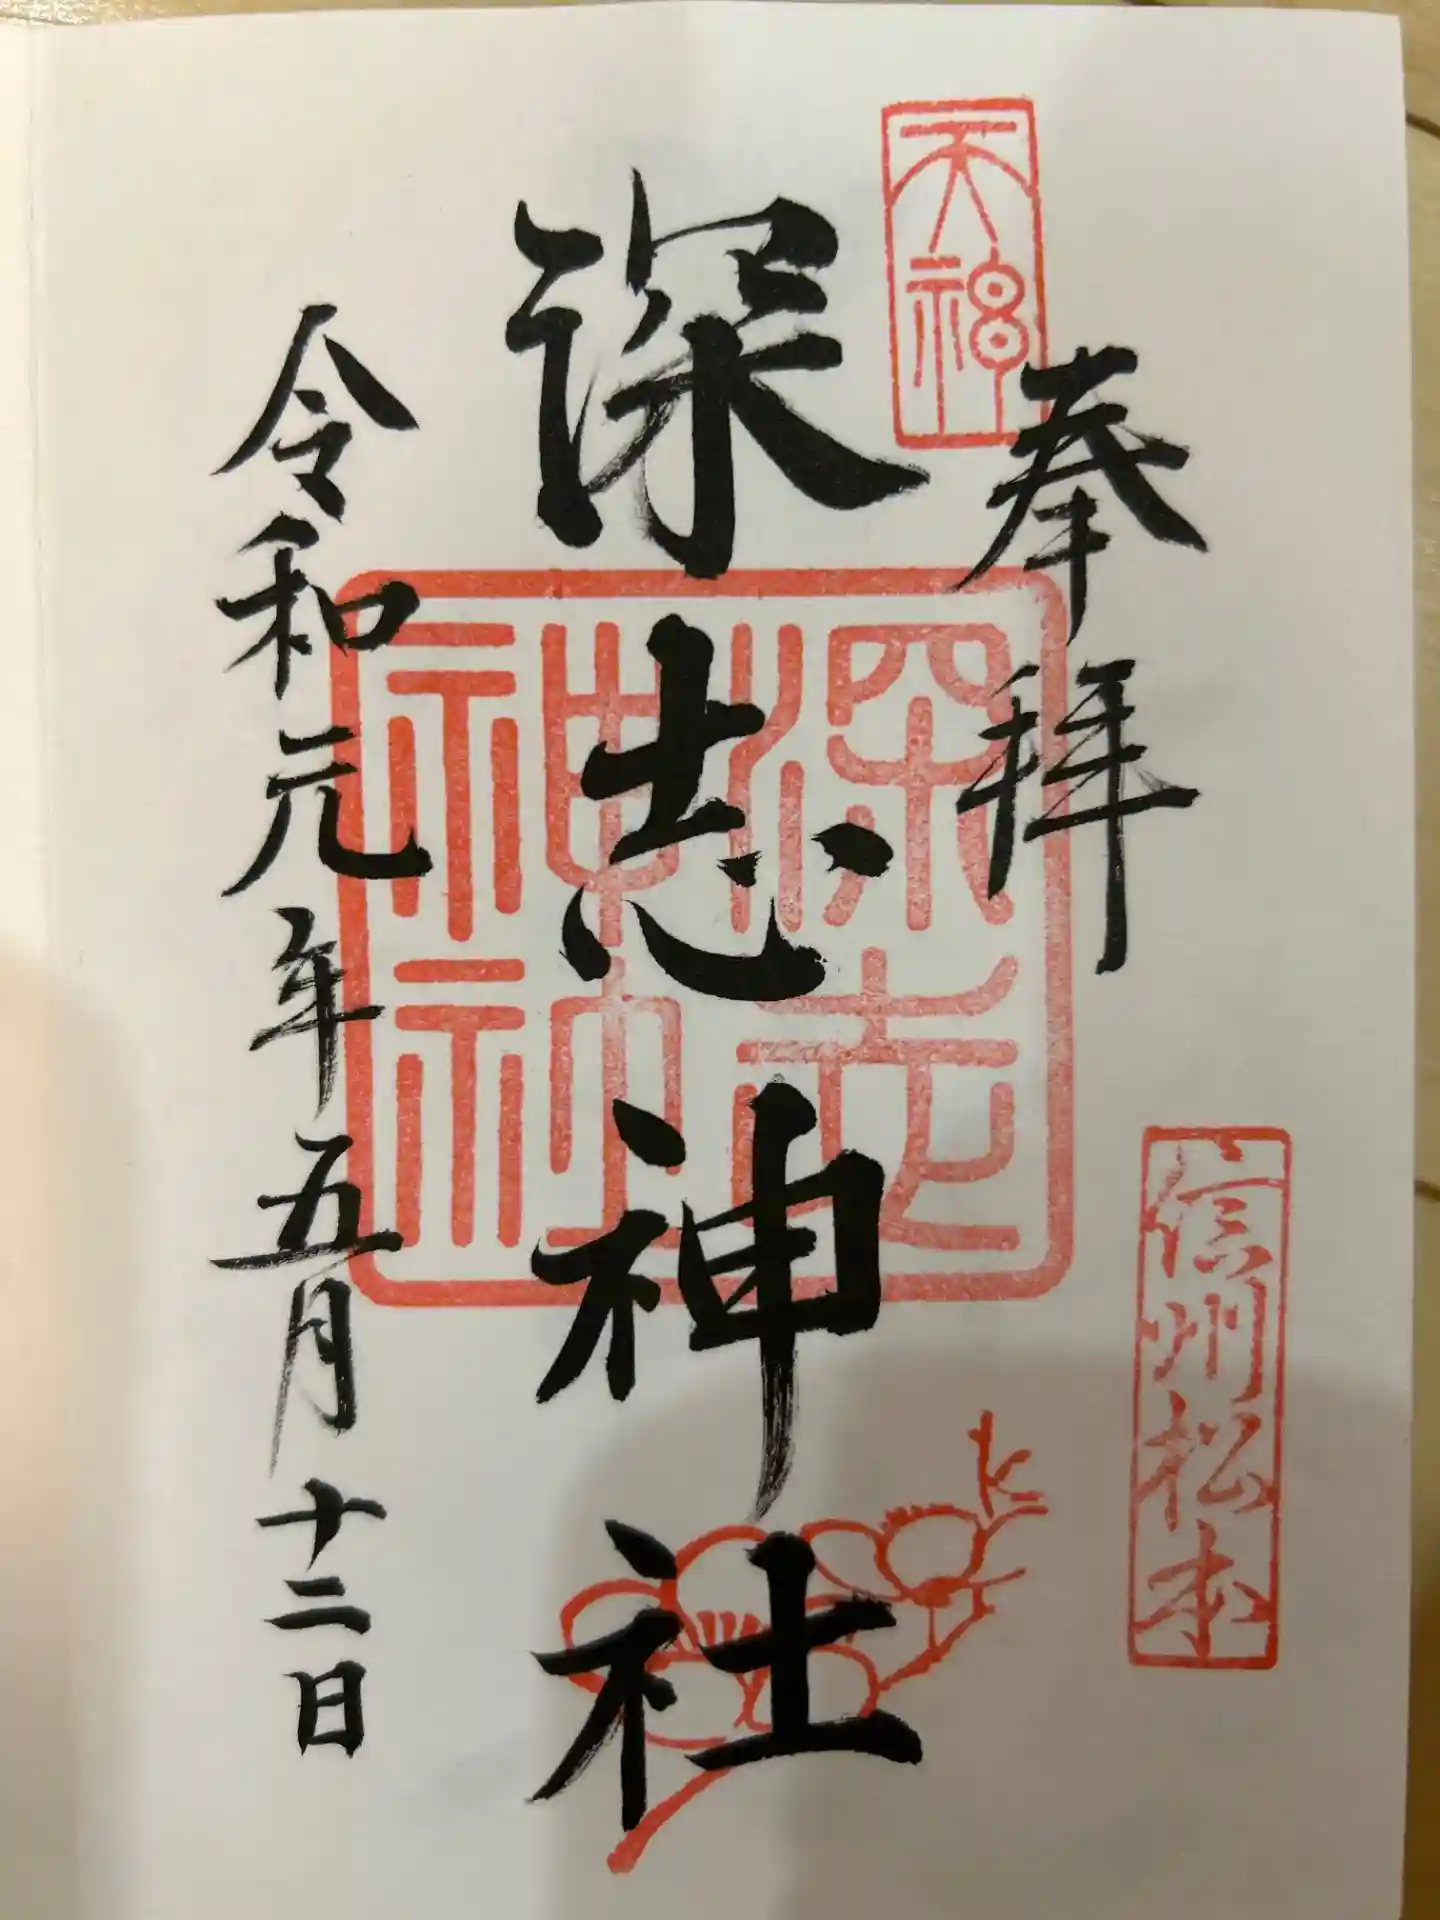 天神
奉拝
信州松本
深志神社
深志神社
令和元年五月十二日